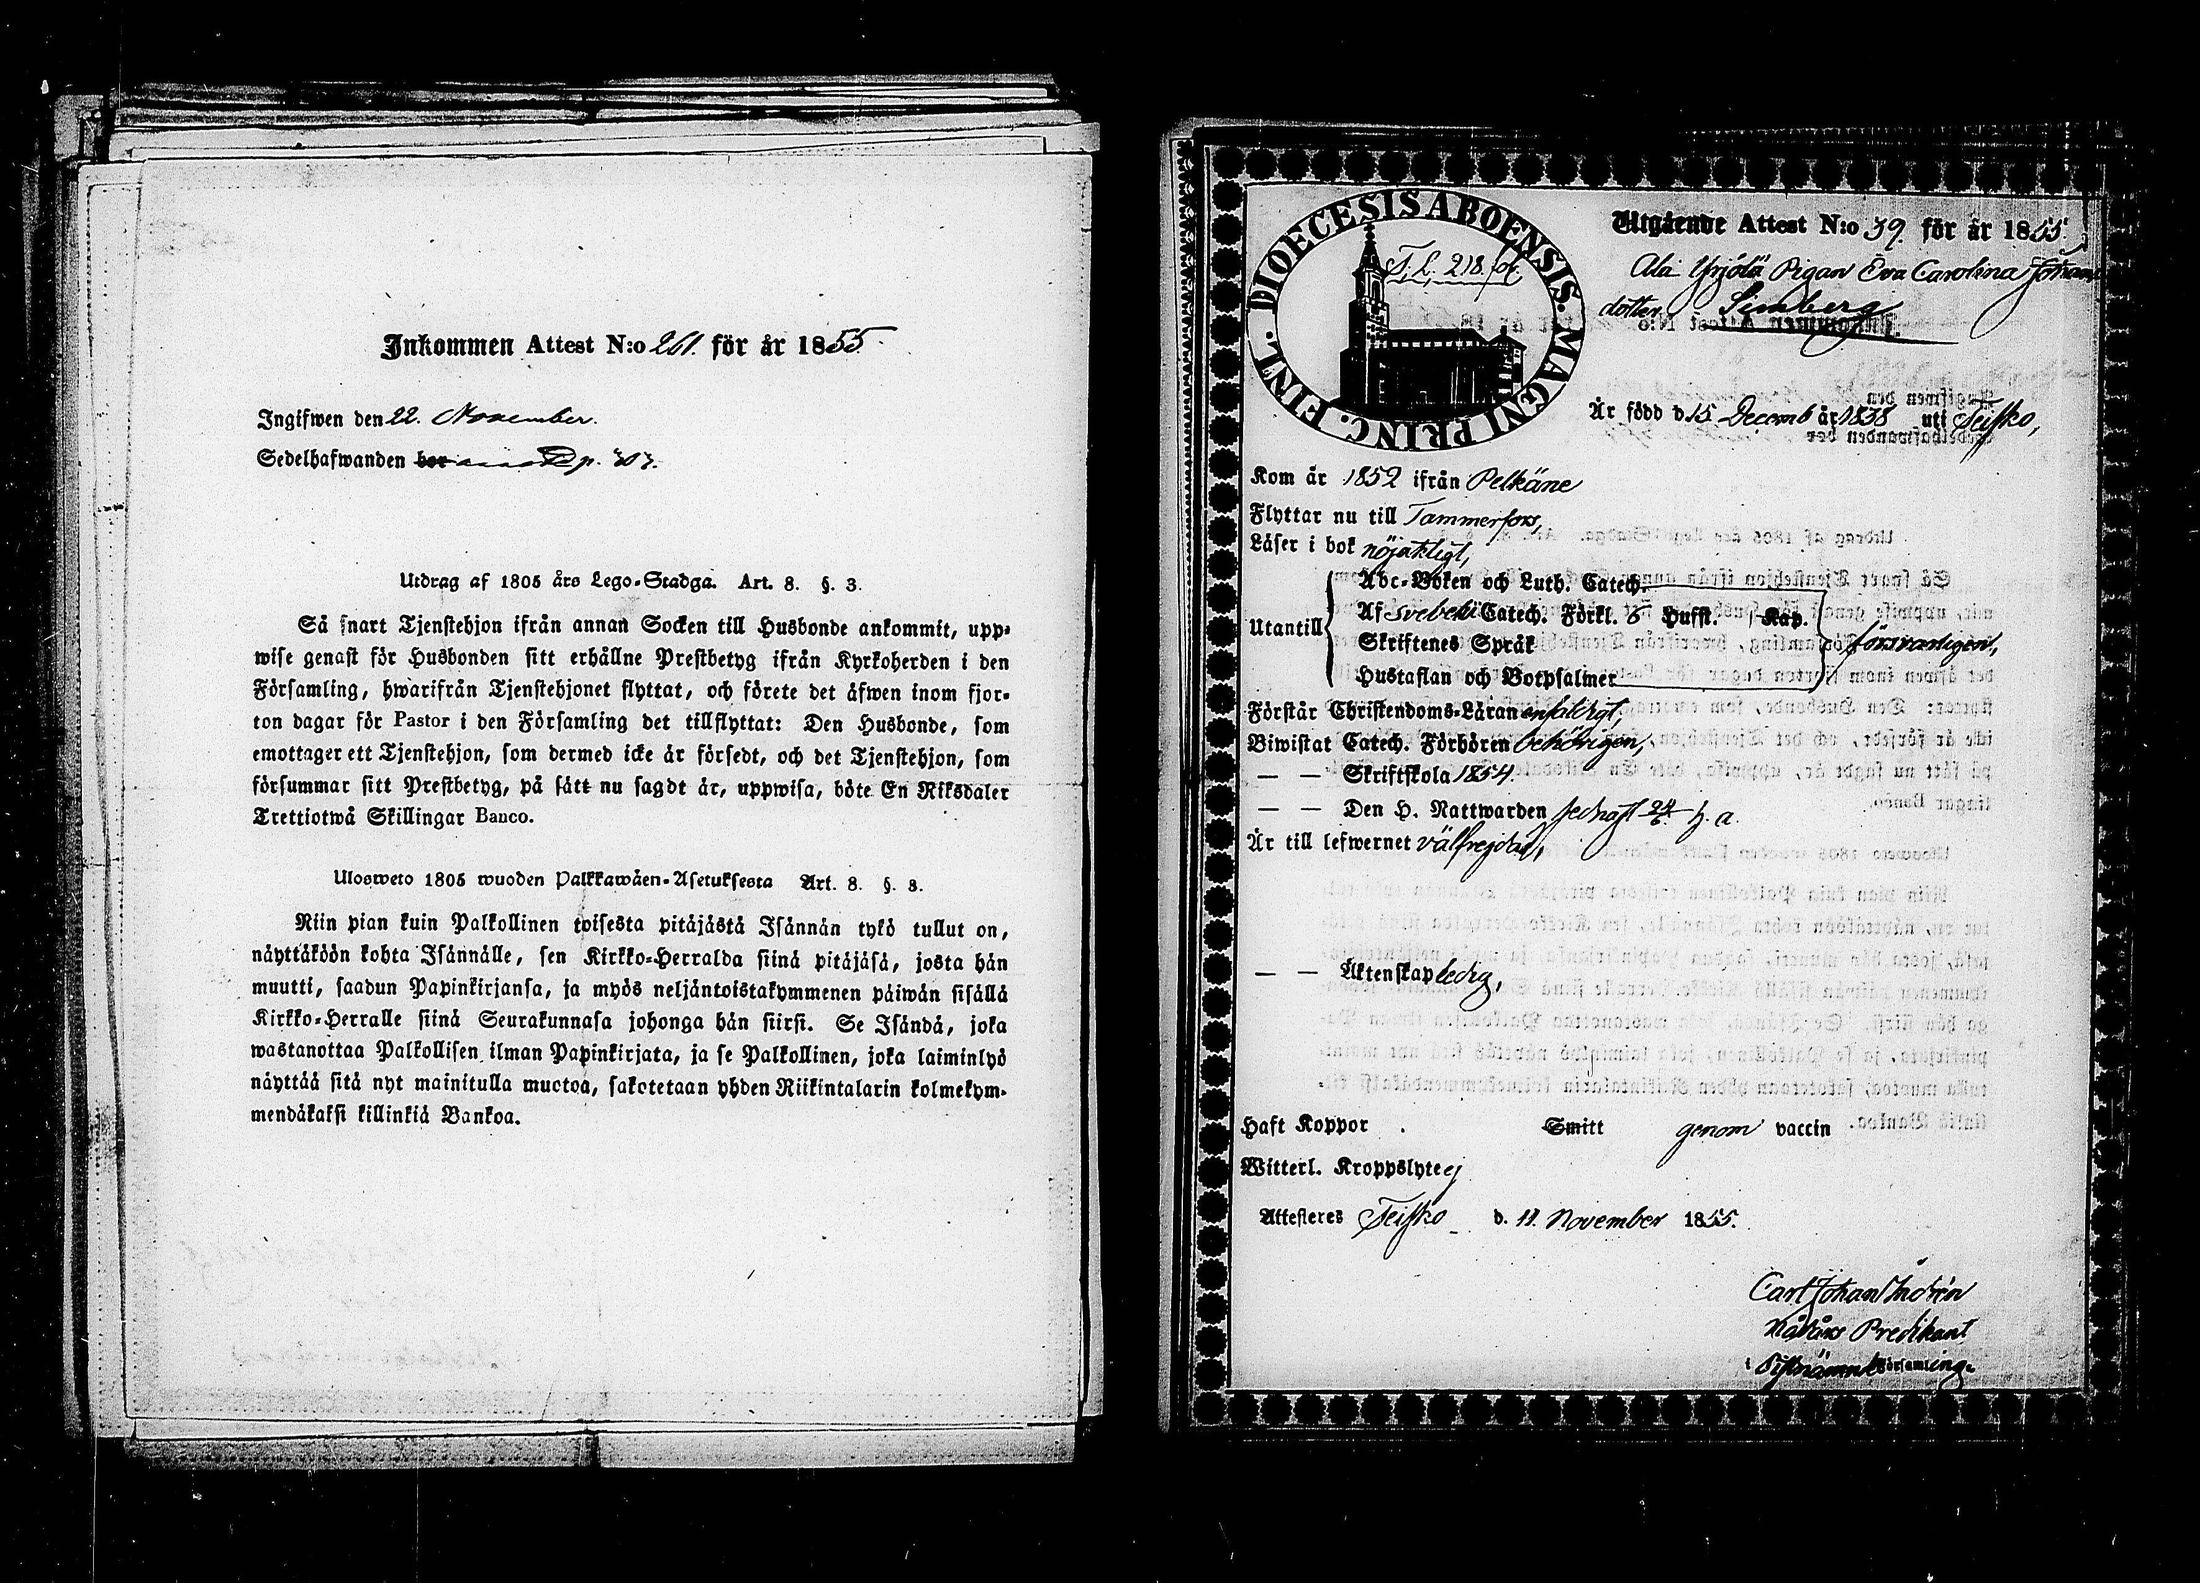 Inkommen Attest N:o 261. för år 1855.
Ingifwen den 22. November.
Sedelhafwanden bor p. 303.
Utdrag af 1805 års Lego-Stadga. Art. 8. §. 3.
Så snart Tjenstehjon ifrån annan Socken till Husbonde ankommit, upp-
wise genast för Husbonden sitt erhållne Prestbetyg ifrån Kyrkoherden i den
Församling, hwarifrån Tjenstehjonet flyttat, och förete det äfwen inom fjor-
ton dagar för Pastor i den Församling det tillflyttat: Den Husbonde, som
emottager ett Tjenstehjon, som dermed icke är försedt, och det Tjenstehjon, som
försummar sitt Prestbetyg, på sätt nu sagdt är, uppwisa, böte En Riksdaler
Trettiotwå Skillingar Banco.
Ulosweto 1805 wuoden Palkkawäen-Asetuksesta Art. 8. §. 3.
Niin pian kuin Palkollinen toisesta pitäjästä Isännän tykö tullut on,
näyttäköön kohta Isännälle, sen Kirkko-Herralda siinä pitäjäsä, josta hän
muutti, saadun Papinkirjansa, ja myös neljäntoistakymmenen päiwän sisällä
Kirkko-Herralle siinä Seurakunnasa johonga hän siirsi. Se Isändä, joka
wastanottaa Palkollisen ilman Papinkirjata, ja se Palkollinen, joka laiminlyö
näyttää sitä nyt mainitulla muotoa, sakotetaan yhden Riikintalarin kolmekym-
mendäkaksi killinkiä Bankoa.
DIOECESIS ABOENSIS. MAGNI PRINC. FINL.
T. L. 218.
Utgående Attest N:o 39. för år 1855.
Ala Yrjölä Pigan Eva Carolina Johans
dotter Simberg
Är född d. 15 Decemb år 1838 uti Teisko,
Kom år 1852 ifrån Pelkäne
Flyttar nu till Tammerfors,
Läser i bok nöjaktigt,
Utantill
Abc-Boken och Luth. Catech.
Af Svebelii Catech. Förkl. 6 Hufst. Kap.
Skriftenes Språk
Hustaflan och Botpsalmer
försvarligen,
Förstår Christendoms-Läran enfaldigt,
Biwistat Catech. Förhören behörigen,
— — Skriftskola 1854.
— — Den H. Nattwarden sednast 24/6 h. a.
Är till lefwernet välfrejdad,
— — Äktenskap ledig,
Haft Koppor . Smitt genom vaccin
Witterl. Kroppslyte ej
Attesteres Teisko d. 11 November 1855.
Carl Johan
Nådårs Predikant
i Ofvannämnde Församling.